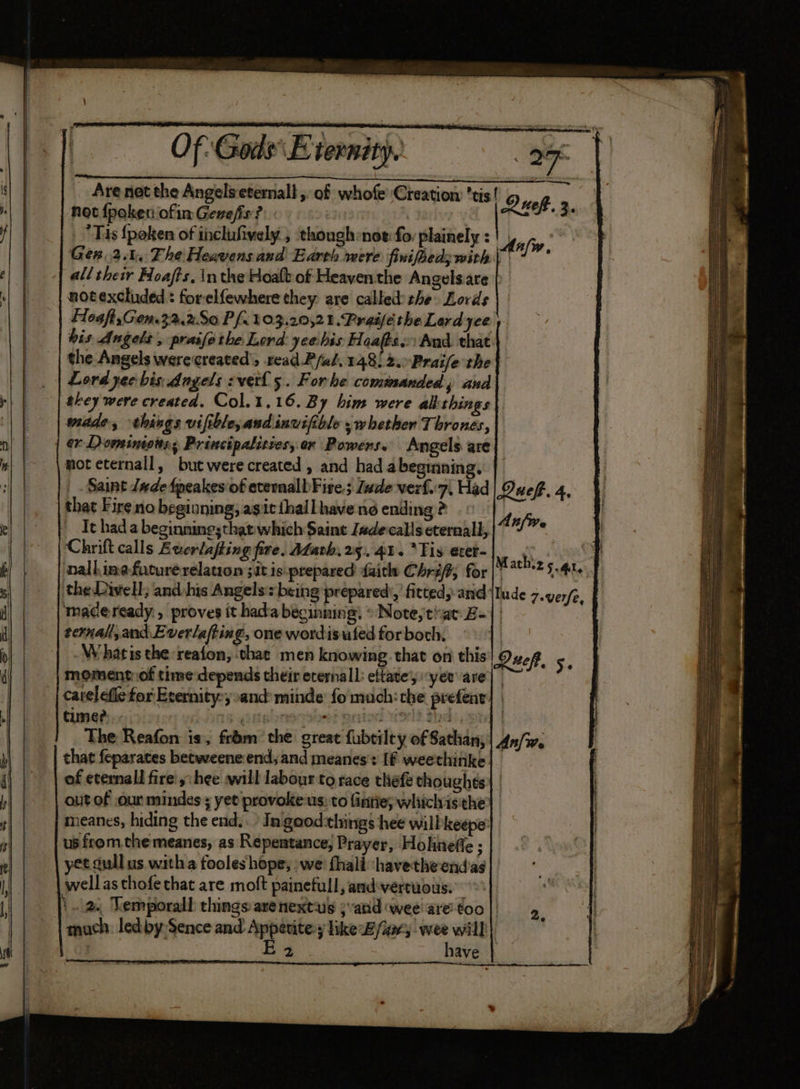 Of Gods Eternity. 27
Are not the Angels eternall, of whose Creation 'tis
not spoken of in Genesis?
Quest. 3.
'Tis spoken of inclusively, though not so plainely:
Answ.
Gen. 2.1. The Heavens and Earth were finished, with
all their Hoasts. In the Hoast of Heaven the Angels are
not excluded: for elsewhere they are called the Lords
Hoast, Gen. 32.2. So Ps. 103.20,21. Praise the Lord yee
his Angels, praise the Lord yee his Hoasts. And that
the Angels were created, read Psal. 148. 2. Praise the
Lord yee his Angels: vers. 5. For he commanded, and
they were created. Col. 1. 16. By him were all things
made, things visible, and invisible, whether Thrones,
or Dominions, Principalities, or Powers. Angels are
not eternall, but were created, and had a beginning.
Saint Jude speakes of eternall Fire; Jude vers. 7. Had
Quest. 4.
that Fire no beginning, as it shall have no ending?
It had a beginning; that which Saint Jude calls eternall,
Answ.
Christ calls Everlasting fire. Math. 25. 41. 'Tis eter-
nall in a future relation; it is prepared saith Christ, for
Math. 25.41.
the Divell, and his Angels: being prepared, fitted, and
Iude 7. verse,
made ready, proves it had a beginning. Note, that E-
ternall, and Everlasting, one word is used for both.
What is the reason, that men knowing that on this
Quest. 5.
moment of time depends their eternall estate, yet are
carelesse for Eternity, and minde so much the present
time?
The Reason is, from the great subtilty of Sathan,
Answ.
that separates betweene end, and meanes: If wee thinke
of eternall fire, hee will labour to race these thoughts
out of our mindes; yet provoke us to sinne, which is the
meanes, hiding the end. In good things hee will keepe
us from the meanes, as Repentance, Prayer, Holinesse;
yet lull us with a fooles hope, we shall have the end as
well as those that are most painefull, and vertuous.
2. Temporall things are next us, and wee are too
2.
much led by Sence and Appetite, like Esaw, wee will
E 2 have